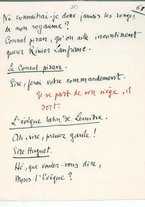 20
Ne connaîtrai-je donc jamais les songes
de mon royaume ?
Consul pisan, qu'on aille incontinent
querir Rimier Lanframe.
Le Consul pisan.
Sire, j'errai votre commandement.
Il se part de son siège, il
sort.
L'évêque latin de Lemistre.
Ah, sire, prenez garde !
Sire Huguet.
Hé, que voulez-vous dire,
Mons l'Évêque ?